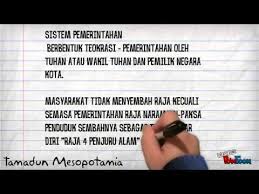 SISTEM PEMERINTAHAN
BERBENTUK TEOKRASI - PEMERINTAHAN OLEH
TUHAN ATAU WAKIL TUHAN DAN PEMILIK NEGARA
KOTA.
MASYARAKAT TIDAK MENYEMBAH RAJA KECUALI
SEMASA PEMERINTAHAN RAJA NARAM PAKSA
PENDUDUK SEMBAHNYA SEBAGAI
DIRI "RAJA 4 PENJURU ALAM"
Tamadun Mesopotamia